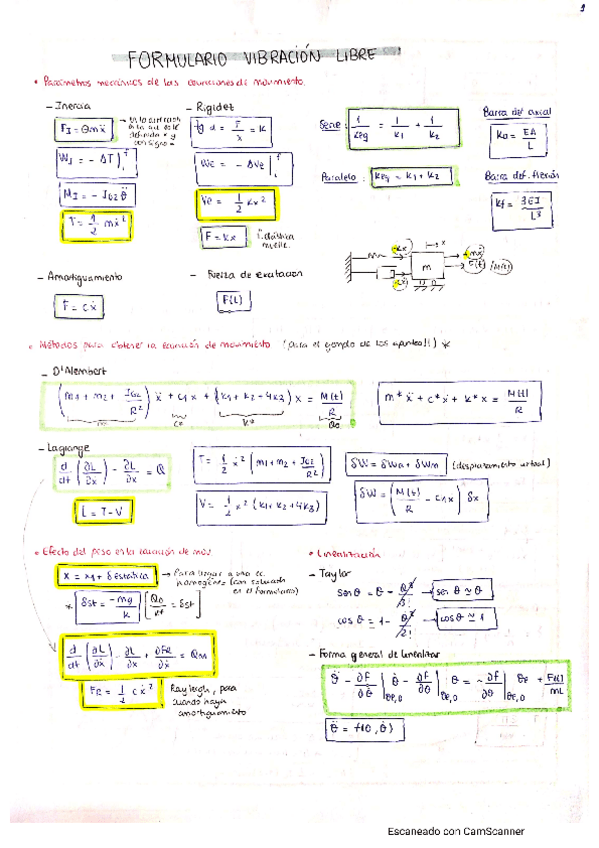 1
FORMULARIO VIBRACIÓN LIBRE
• Parámetros mecánicos de las ecuaciones de movimiento.
– Inercia
F_I = -m ẍ
W_I = - ΔT |
M_I = - I_Gz θ̈
T = 1/2 m ẋ²
– Rigidez
tg α = T/x = K
We = - ΔVe |
Ve = 1/2 K x²
F = Kx
Serie: 1/Keq = 1/K1 + 1/K2
Paralelo: Keq = K1 + K2
Barra def axial
Ka = EA/L
Barra def. flexión
Kf = 3EI/L³
m
– Amortiguamiento
F = cẋ
– Fuerza de excitación
F(t)
• Métodos para obtener la ecuación de movimiento (para el ejemplo de los apuntes!!) *
– D'Alembert
(m1 + m2 + I_G2/R²) ẍ + c1 ẋ + (K1 + K2 - 4K3) x = M(t)/R
m* c* K* Q0
m* ẍ + c* ẋ + K* x = M(t)/R
– Lagrange
d/dt (∂L/∂ẋ) - ∂L/∂x = Q
L = T - V
T = 1/2 ẋ² (m1 + m2 + I_G2/R²)
V = 1/2 x² (K1 + K2 + 4K3)
δW = δWa + δWm (desplazamiento virtual)
δW = (M(t)/R - c1 ẋ) δx
• Efecto del peso en la ecuación de mov.
x = x1 + δ estática → Para llegar a una ec.
homogénea (con solución
en el formulario)
* δst = -mg/K [Q0/K* = δst]
d/dt (∂L/∂ẋ) - ∂L/∂x + ∂FR/∂ẋ = Qm
FR = 1/2 c ẋ² Rayleigh, para
cuando haya
amortiguamiento
• Linealización
– Taylor
sen θ = θ - θ³/3! → sen θ ≃ θ
cos θ = 1 - θ²/2! → cos θ ≃ 1
– Forma general de linealizar
θ̈ - ∂f/∂θ̇ |θe,0 θ̇ - ∂f/∂θ |θe,0 θ = - ∂f/∂θ |θe,0 θe + F(t)/mL
θ̈ = f(θ, θ̇)
Escaneado con CamScanner